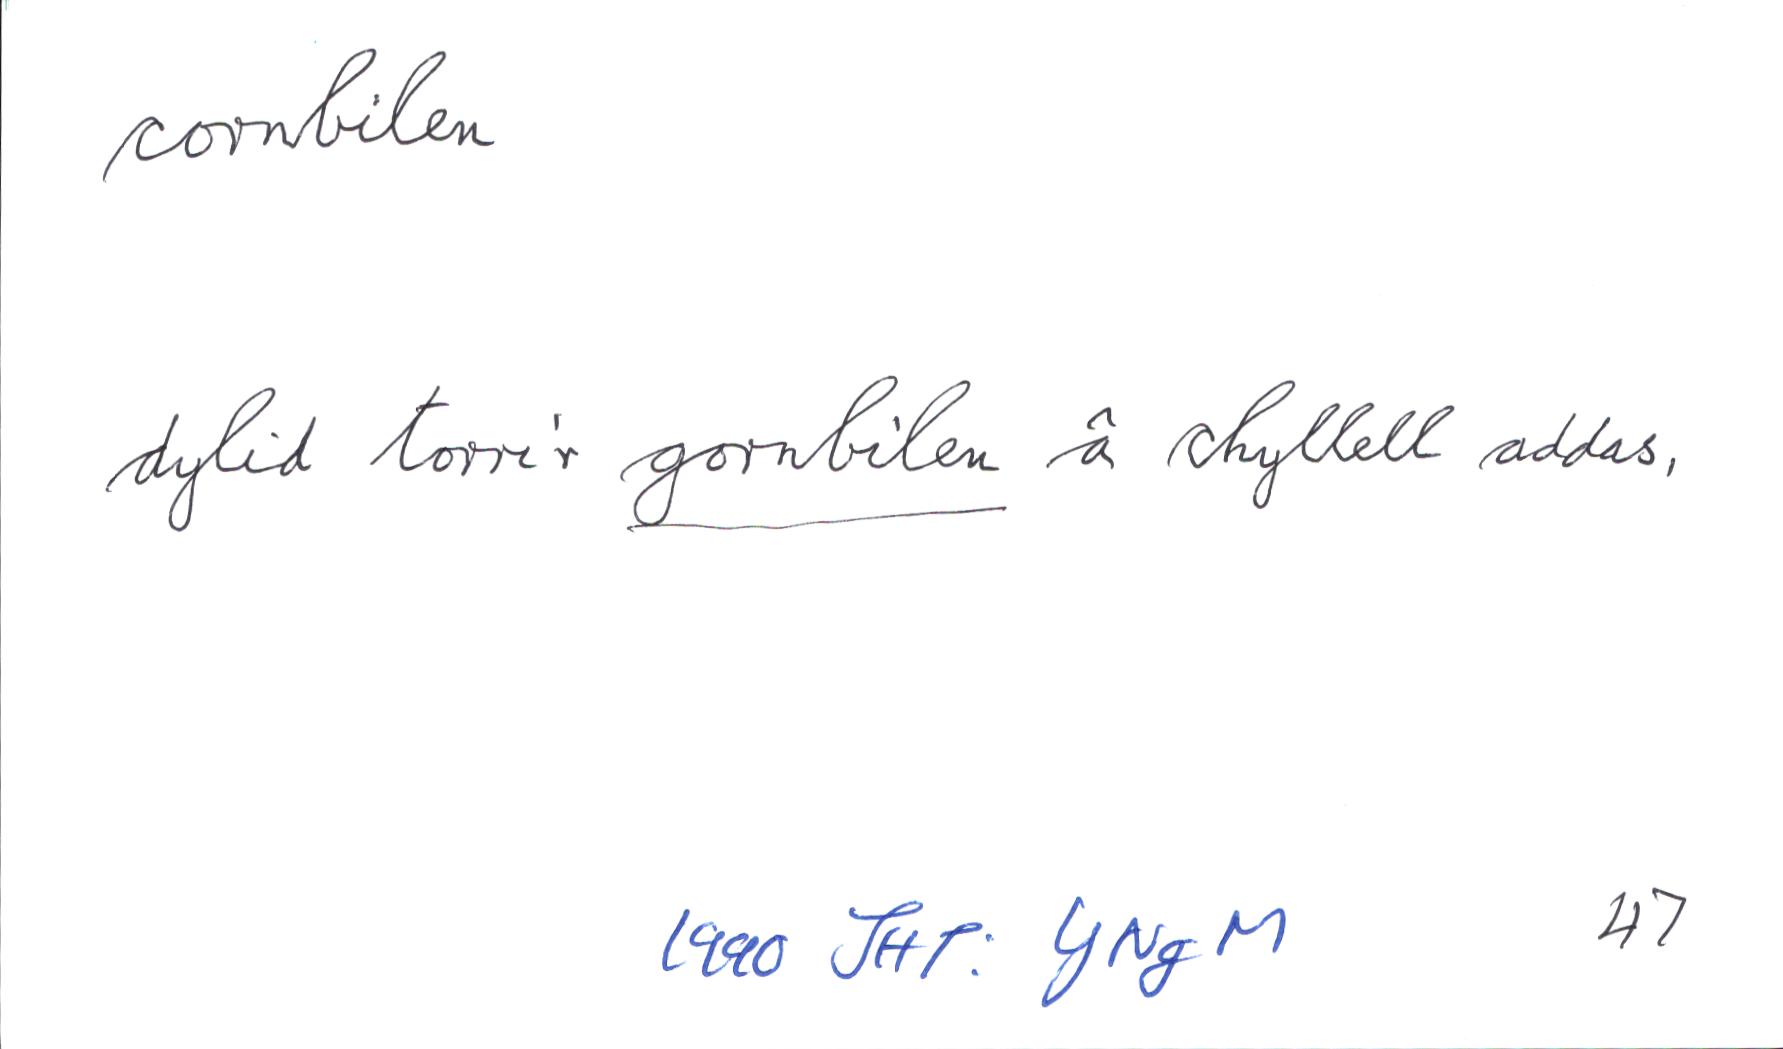 cornbilen
dylid torri'r gornbilen â chyllell addas,
1990 JHP: YNgM 47